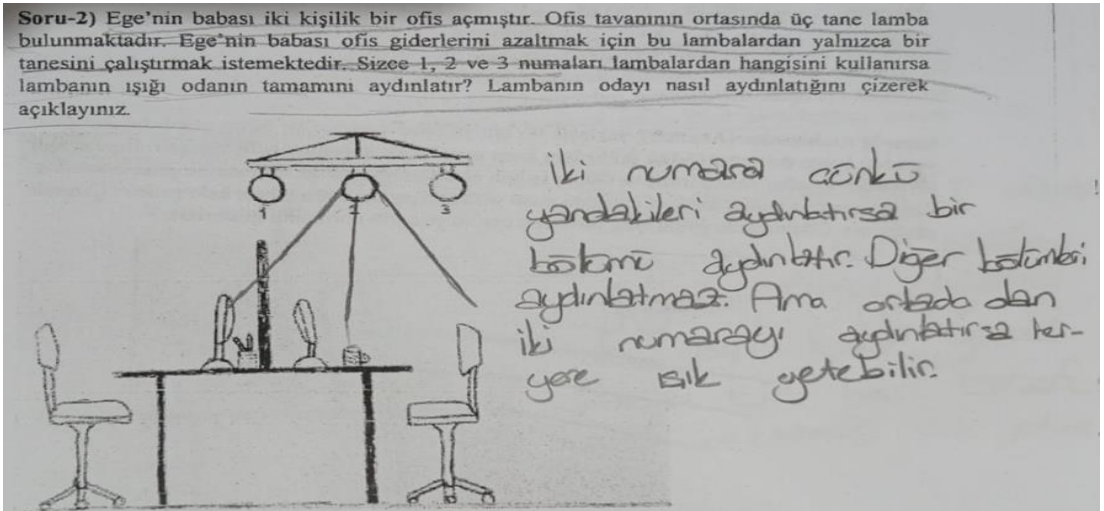 Soru-2) Ege'nin babası iki kişilik bir ofis açmıştır. Ofis tavanının ortasında üç tane lamba
bulunmaktadır. Ege'nin babası ofis giderlerini azaltmak için bu lambalardan yalnızca bir
tanesini çalıştırmak istemektedir. Sizce 1, 2 ve 3 numaralı lambalardan hangisini kullanırsa
lambanın ışığı odanın tamamını aydınlatır? Lambanın odayı nasıl aydınlatığını çizerek
açıklayınız.
iki numara çünkü
yandakileri aydınlatırsa bir
bölümü aydınlatır. Diğer bölümleri
aydınlatmaz. Ama ortada olan
iki numarayı aydınlatırsa her-
yere ışık yetebilir.
1 2 3